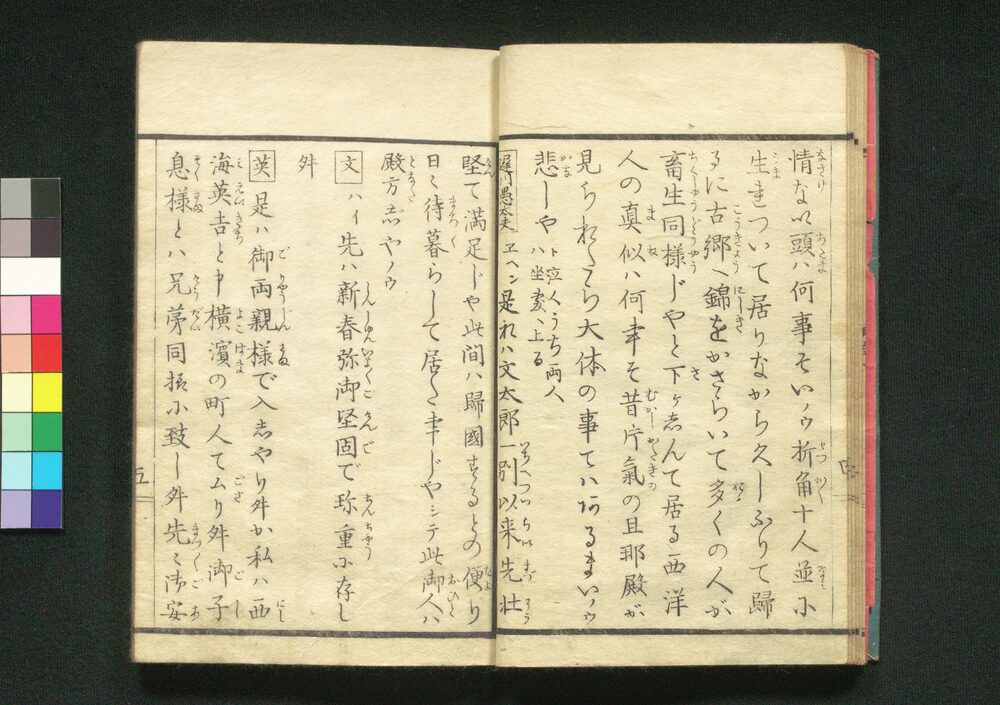 情ない頭ハ何事そいノウ折角十人並に
生まついて居りなから久しふりて歸
るに古郷へ錦をかさらいて多くの人が
畜生同様じやと下ゲしんて居る西洋
人の真似ハ何事そ昔片氣の旦那殿が
見られたら大体の事てハあるまいノウ
悲しや
ト泣くうち両人
ハ坐敷へ上る
遅川愚太夫 ヱヘン是れハ文太郎一別以来先壮
堅て満足じや此間ハ歸國するとの便り
日々待暮らして居た事じやシテ此御人ハ
殿方しやノウ
文 ハイ先ハ新春弥御堅固で珎重に存し
舛
英 是ハ御両親様で入しやり舛か私ハ西
海英吉と申横濱の町人てムり舛御子
息様とハ兄弟同様に致し舛先々御安
五